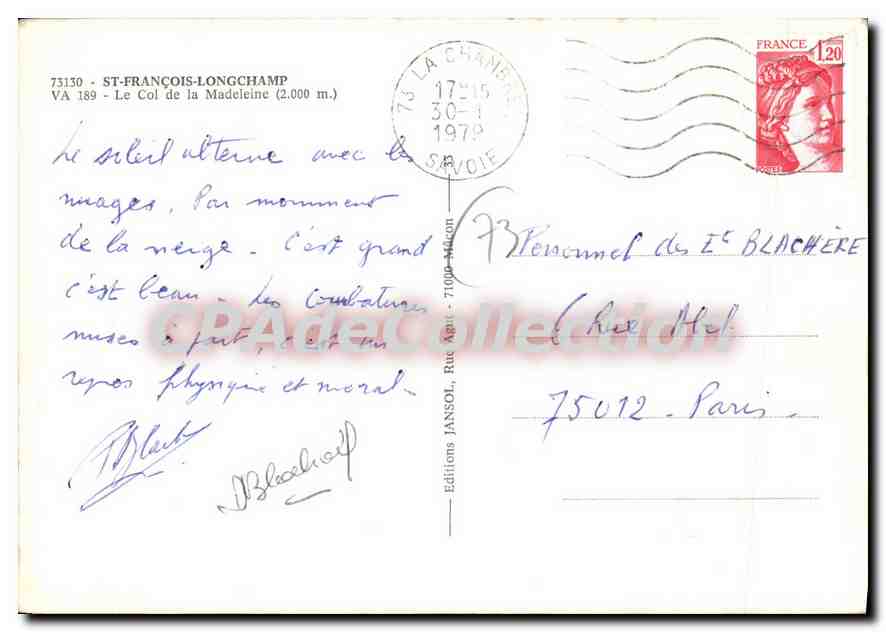 73130 - ST-FRANÇOIS-LONGCHAMP
VA 189 - Le Col de la Madeleine (2.000 m.)
Le soleil alterne avec les
nuages. Par momment
de la neige - C'est grand
c'est beau - Les courbatures
mises à part, c'est un
repos physique et moral -
DBlachère
Editions JANSOL, Rue Agut - 71000 Mâcon
73 LA CHAMBRE
17H15
30-1
1979
SAVOIE
FRANCE
1,20
POSTES
73
Personnel des Ets BLACHÈRE
6 Rue Abel
75012 - Paris -
CPAdeCollection